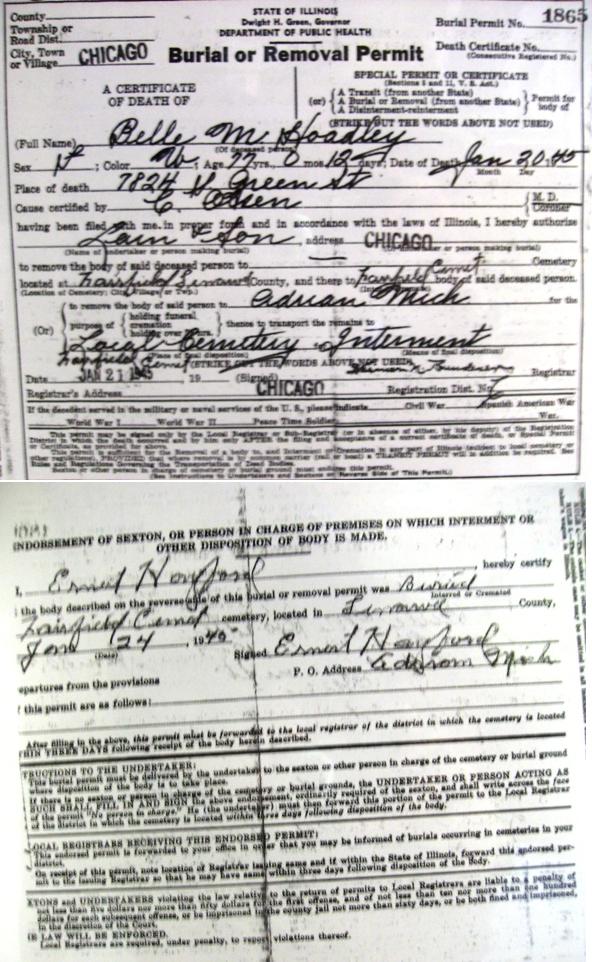 County
STATE OF ILLINOIS
Township or
Road Dist.
Dwight H. Green, Governor
DEPARTMENT OF PUBLIC HEALTH
Burial Permit No. 1865
City, Town
or Village CHICAGO
Burial or Removal Permit
Death Certificate No.
(Consecutive Registered No.)
A CERTIFICATE
OF DEATH OF
SPECIAL PERMIT OR CERTIFICATE
(Sections 5 and 11, V. S. Act.)
(or) A Transit (from another State)
A Burial or Removal (from another State)
A Disinterment-reinterment
Permit for
body of
(STRIKE OUT THE WORDS ABOVE NOT USED)
(Full Name) Belle M Hoadley
(Of deceased person)
Sex F; Color W; Age 77 yrs, 0 mos 12 days; Date of Death Jan 20 45
Month Day
Place of death 7824 Green St
Cause certified by C. Olsen M. D.
Coroner
having been filed with me in proper form and in accordance with the laws of Illinois, I hereby authorize
Lain Son, address CHICAGO
(Name of undertaker or person making burial)
to remove the body of said deceased person to Cemetery
located at Fairfield Lenawee County, and there to body of said deceased person.
(Location of Cemetery; City, Village or Twp.)
to remove the body of said person to Adrian Mich for the
(Or) purpose of holding funeral
cremation
holding over hours. thence to transport the remains to
Local Cemetery Interment
(Place of final disposition) (Means of final disposition)
Fairfield Cemet (STRIKE OUT THE WORDS ABOVE NOT USED)
Date JAN 21 1945 19 (Signed) Registrar
Registrar's Address CHICAGO Registration Dist. No.
If the decedent served in the military or naval services of the U. S., please indicate Civil War, Spanish American War
World War I World War II Peace Time Soldier War.
This permit may be signed only by the Local Registrar or Sub-Registrar (or in absence of either, by his deputy) of the Registration
District in which the death occurred and by him only AFTER the filing and acceptance of a correct certificate of death, or Special Permit
or Certificate as called for above.
This permit is sufficient for the Removal of a body to, and Interment or Cremation in any part of Illinois
Rules and Regulations Governing the Transportation of Dead Bodies.
Sexton or other person in charge of cemetery or burial ground must endorse this permit.
(See Instructions to Undertakers and Sextons on Reverse Side of This Permit.)
ENDORSEMENT OF SEXTON, OR PERSON IN CHARGE OF PREMISES ON WHICH INTERMENT OR
OTHER DISPOSITION OF BODY IS MADE.
I, Ernest Hayford, hereby certify
the body described on the reverse side of this burial or removal permit was Buried
Interred or Cremated
Fairfield Cemet cemetery, located in Lenawee County,
Jan 24, 1945
(Date)
Signed Ernest Hayford
P. O. Address Adrian Mich
epartures from the provisions
f this permit are as follows:
After filling in the above, this permit must be forwarded to the local registrar of the district in which the cemetery is located
THIN THREE DAYS following receipt of the body herein described.
TRUCTIONS TO THE UNDERTAKER:
This burial permit must be delivered by the undertaker to the sexton or other person in charge of the cemetery or burial ground
where disposition of the body is to take place.
If there is no sexton or person in charge of the cemetery or burial ground, the UNDERTAKER OR PERSON ACTING AS
SUCH SHALL FILL IN AND SIGN the above endorsement, ordinarily required of the sexton, and shall write across the face
of the permit "No person in charge." He (the undertaker) must then forward this portion of the permit to the Local Registrar
of the district in which the cemetery is located within three days following disposition of the body.
LOCAL REGISTRARS RECEIVING THIS ENDORSED PERMIT:
This endorsed permit is forwarded to your office in order that you may be informed of burials occurring in cemeteries in your
district.
On receipt of this permit, note location of Registrar issuing same and if within the State of Illinois, forward this endorsed per-
mit to the issuing Registrar so that he may have same within three days following disposition of the Body.
XTONS and UNDERTAKERS violating the law relative to the return of permits to Local Registrars are liable to a penalty of
not less than five dollars nor more than fifty dollars for the first offense, and of not less than ten nor more than one hundred
dollars for each subsequent offense, or be imprisoned in the county jail not more than sixty days, or be both fined and imprisoned,
in the discretion of the Court.
HE LAW WILL BE ENFORCED.
Local Registrars are required, under penalty, to report violations thereof.